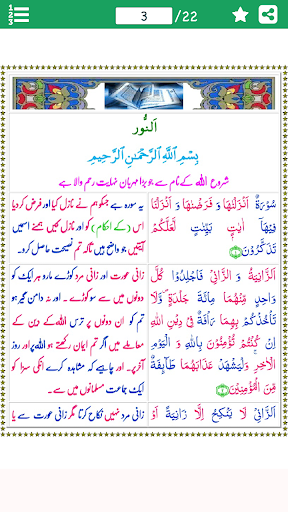 1 2 3
3
/22
اَلنُّور
بِسْمِ اللّٰهِ الرَّحْمٰنِ الرَّحِيْمِ
شروع اللہ کے نام سے جو بڑا مہربان نہایت رحم والا ہے
سُوْرَةٌ اَنْزَلْنٰهَا وَ فَرَضْنٰهَا وَ اَنْزَلْنَا
فِيْهَاۤ اٰيٰتٍۭ بَيِّنٰتٍ لَّعَلَّكُمْ
تَذَكَّرُوْنَ
یہ سورہ ہے جسکو ہم نے نازل کیا اور فرض کردیا
اس (کے احکام) کو اور نازل کیں ہمنے اسمیں
آیتیں جو واضح ہیں تاکہ تم نصیحت حاصل کرو۔
اَلزَّانِيَةُ وَ الزَّانِيْ فَاجْلِدُوْا كُلَّ
وَاحِدٍ مِّنْهُمَا مِائَةَ جَلْدَةٍ ۪ وَّ لَا
تَاْخُذْكُمْ بِهِمَا رَاْفَةٌ فِيْ دِيْنِ اللّٰهِ
اِنْ كُنْتُمْ تُؤْمِنُوْنَ بِاللّٰهِ وَ الْيَوْمِ
الْاٰخِرِ ۚ وَلْيَشْهَدْ عَذَابَهُمَا طَآىِٕفَةٌ
مِّنَ الْمُؤْمِنِيْنَ
زانی عورت اور زانی مرد کوڑے مارو ہر ایک کو
دونوں میں سے سو کوڑے۔ اور نہ دامن گیر ہو
تم کو ان دونوں پر ترس اللہ کے دین کے
معاملے میں اگر تم ایمان رکھتے ہو اللہ پر اور روز
آخر پر۔ اور چاہیے کہ مشاہدہ کرے انکی سزا کو
ایک جماعت مسلمانوں میں سے۔
اَلزَّانِيْ لَا يَنْكِحُ اِلَّا زَانِيَةً اَوْ
زانی مرد نہیں نکاح کرتا مگر زانی عورت سے یا